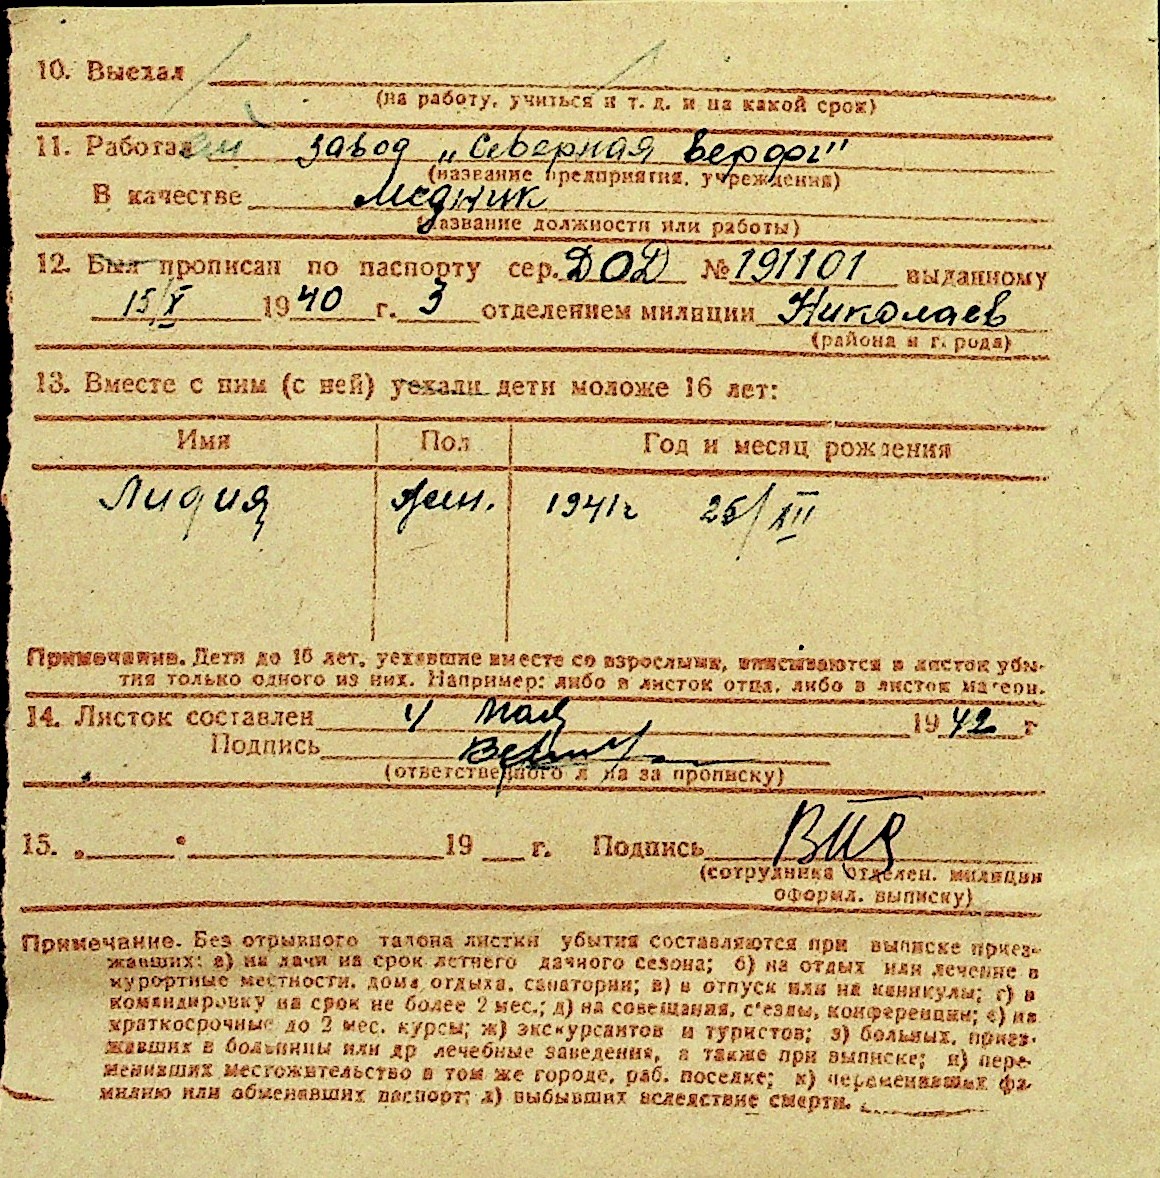 10. Выехал
(на работу, учиться и т. д. и на какой срок)
11. Работал завод „Северная верфь"
(название предприятия, учреждения)
В качестве медник
(название должности или работы)
12. Был прописан по паспорту сер. ДОД № 191101 выданному
15/X 1940 г. 3 отделением милиции Николаев
(района и города)
13. Вместе с ним (с ней) уехали дети моложе 16 лет:
Имя Пол Год и месяц рождения
Лидия жен. 1941г 25/XII
Примечание. Дети до 16 лет, уехавшие вместе со взрослыми, вписываются в листок убы-
тия только одного из них. Например: либо в листок отца, либо в листок матери.
14. Листок составлен 4 мая 1942 г
Подпись
(ответственного лица за прописку)
15. „ " 19 г. Подпись
(сотрудника отделен. милиции
оформл. выписку)
Примечание. Без отрывного талона листки убытия составляются при выписке приез-
жавших: а) на дачи на срок летнего дачного сезона; б) на отдых или лечение в
курортные местности, дома отдыха, санатории; в) в отпуск или на каникулы; г) в
командировку на срок не более 2 мес.; д) на совещания, с'езды, конференции; е) на
краткосрочные до 2 мес. курсы; ж) экскурсантов и туристов; з) больных, приез-
жавших в больницы или др лечебные заведения, а также при выписке; и) пере-
менивших местожительство в том же городе, раб. поселке; к) переменивших фа-
милию или обменявших паспорт; л) выбывших вследствие смерти.